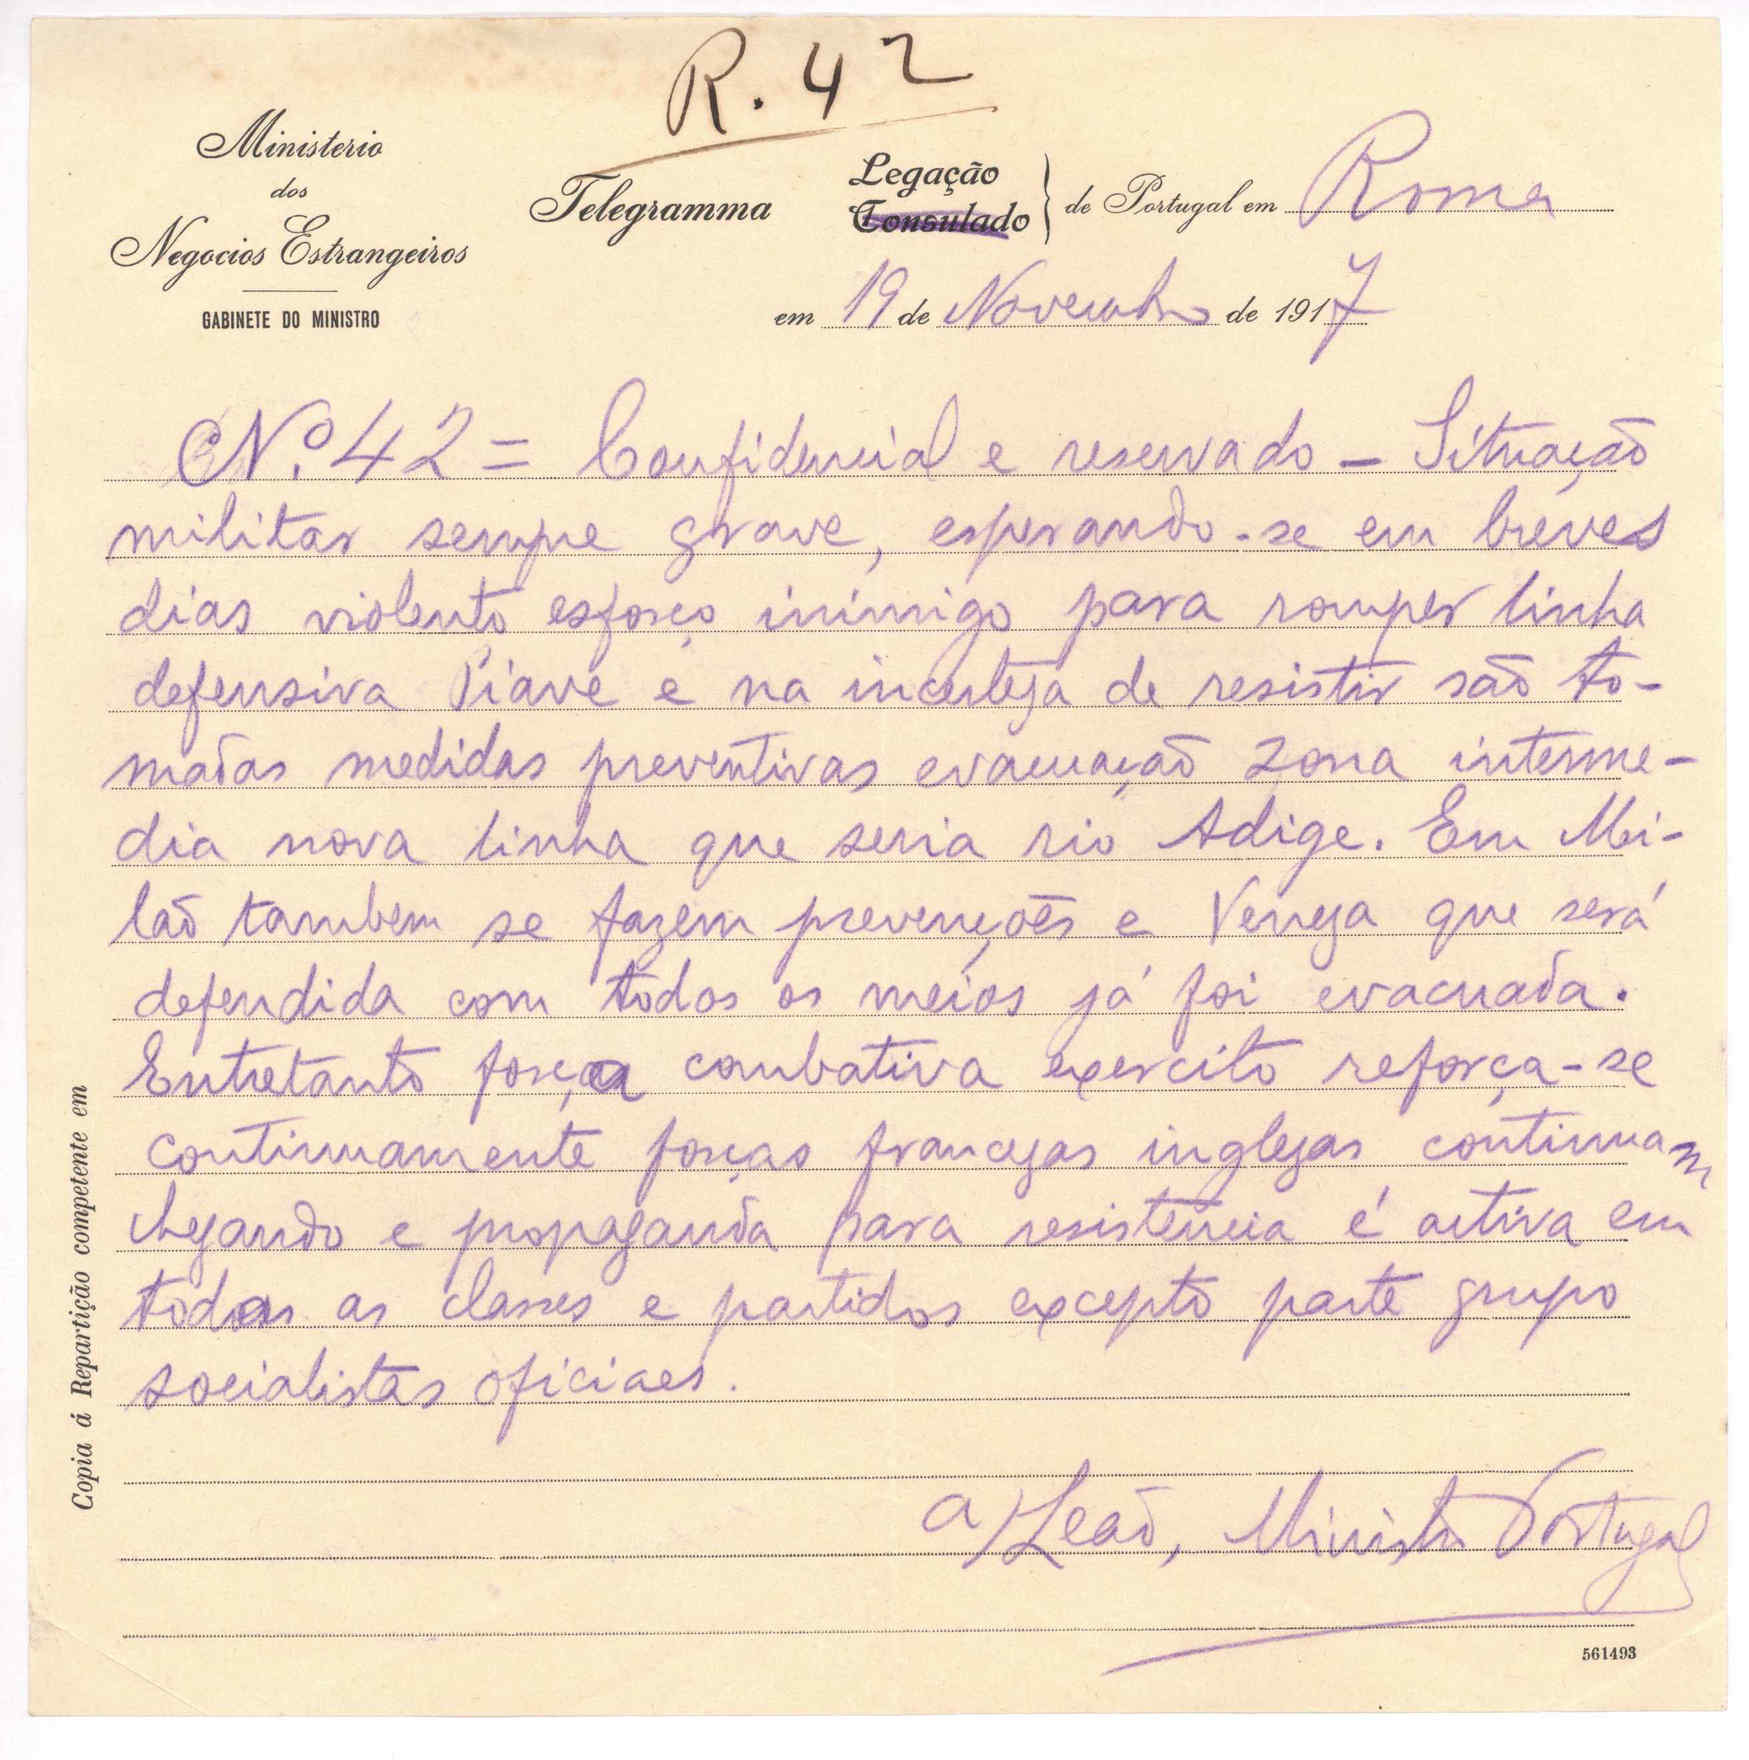 R. 42
Ministerio
dos
Negocios Estrangeiros
GABINETE DO MINISTRO
Telegramma
Legação
Consulado
de Portugal em Roma
em 19 de Novembro de 1917
Nº. 42 = Confidencial e reservado - Situação
militar sempre grave, esperando-se em breves
dias violento esforço inimigo para romper linha
defensiva Piave e na incerteza de resistir são to-
madas medidas preventivas evacuação zona interme-
dia nova linha que seria rio Adige. Em Mi-
lão tambem se fazem prevenções e Veneza que será
defendida com todos os meios já foi evacuada.
Entretanto força combativa exercito reforça-se
continuamente forças francezas inglezas continuam
chegando e propaganda para resistência é activa em
todas as classes e partidos excepto parte grupo
socialistas oficiaes.
a) Leão, Ministro Portugal
Copia á Repartição competente em
561493